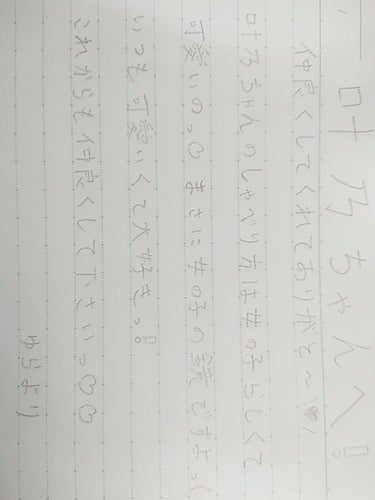 叶乃ちゃんへ!
仲良くしてくれてありがと〜♡
叶乃ちゃんのしゃべり方は女の子らしくて
可愛いの。♡ まさに女の子の鏡ですよっ
いつも可愛いくて大好きっ!
これからも仲良くして下さい。♡♡
ゆらより